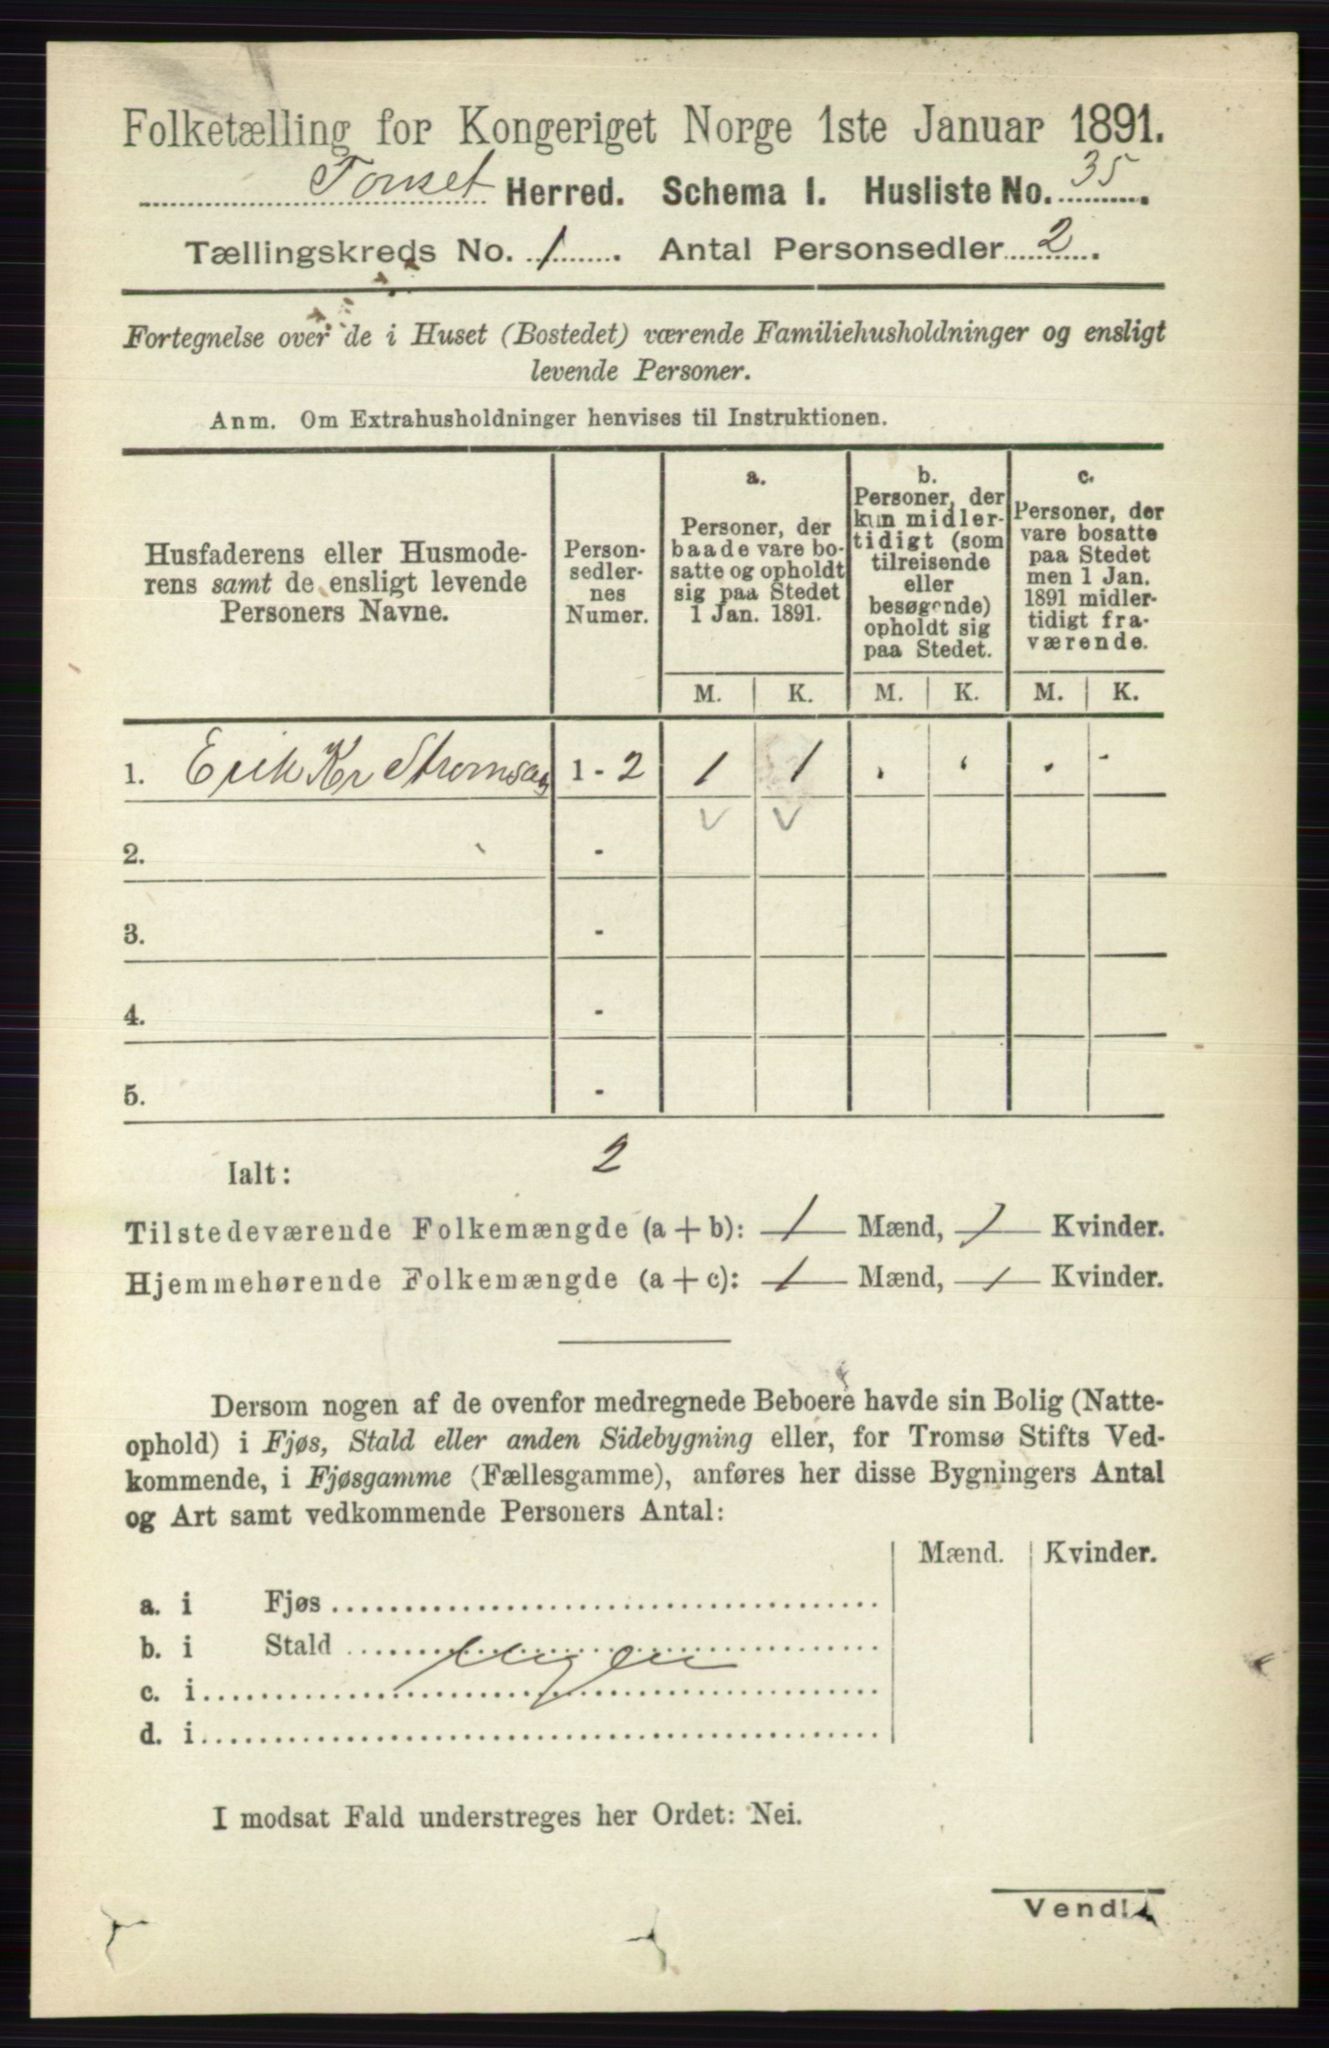 Folketælling for Kongeriget Norge 1ste Januar 1891.
Tonset Herred. Schema 1. Husliste No. 35.
Tællingskreds No. 1. Antal Personsedler 2.
Fortegnelse over de i Huset (Bostedet) værende Familiehusholdninger og ensligt
levende Personer.
Anm. Om Extrahusholdninger henvises til Instruktionen.
Husfaderens eller Husmode-
rens samt de ensligt levende
Personers Navne.
Person-
sedler-
nes
Numer.
a.
Personer, der
baade vare bo-
satte og opholdt
sig paa Stedet
1 Jan. 1891.
b.
Personer, der
kun midler-
tidigt (som
tilreisende
eller
besøgende)
opholdt sig
paa Stedet.
c.
Personer, der
vare bosatte
paa Stedet
men 1 Jan.
1891 midler-
tidigt fra-
værende.
M. K. M. K. M. K.
1. Erik Kr 1 - 2 1 1 . . . .
2. -
3. -
4. -
5. -
Ialt: 2
Tilstedeværende Folkemængde (a + b): 1 Mænd, 1 Kvinder.
Hjemmehørende Folkemængde (a + c): 1 Mænd, 1 Kvinder.
Dersom nogen af de ovenfor medregnede Beboere havde sin Bolig (Natte-
ophold) i Fjøs, Stald eller anden Sidebygning eller, for Tromsø Stifts Ved-
kommende, i Fjøsgamme (Fællesgamme), anføres her disse Bygningers Antal
og Art samt vedkommende Personers Antal:
Mænd. Kvinder.
a. i Fjøs
b. i Stald
c. i
d. i
I modsat Fald understreges her Ordet: Nei.
Vend!